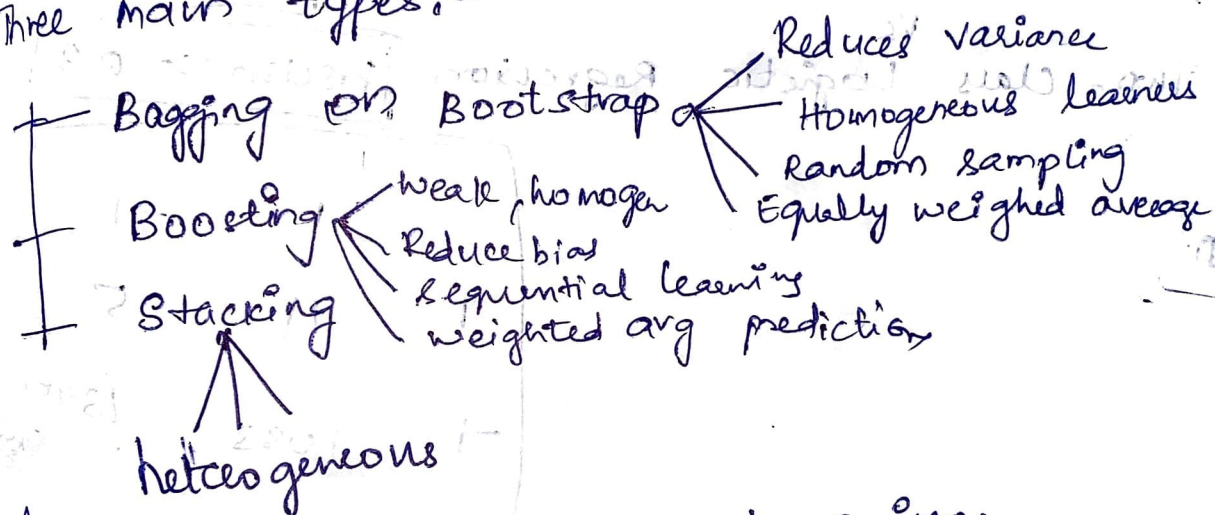 Three main types.
Bagging or Bootstrap
Reduces variance
Homogeneous learners
Random sampling
Equally weighed average
Boosting
weak, homogen
Reduce bias
sequential learning
weighted avg prediction
Stacking
heterogeneous